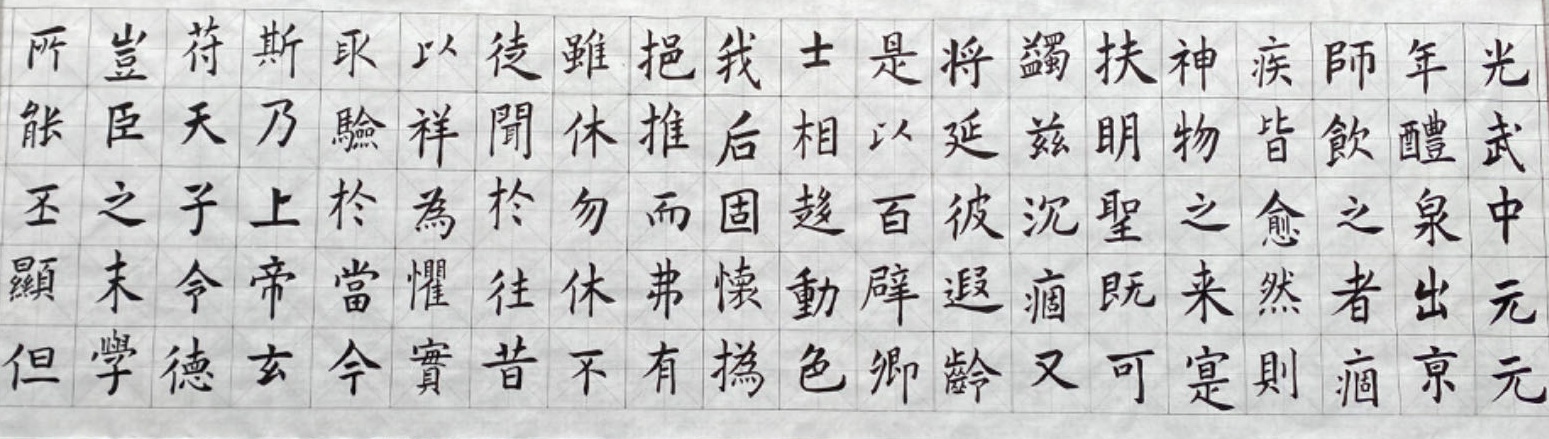 光武中元元
年醴泉出京
師飲之者痼
疾皆愈然則
神物之来寔
扶明聖既可
蠲兹沉痼又
将延彼遐齡
是以百辟卿
士相趍動色
我后固懷撝
挹推而弗有
雖休勿休不
徒聞於往昔
以祥為懼實
取驗於當今
斯乃上帝玄
苻天子令德
豈臣之末學
所能丕顯但